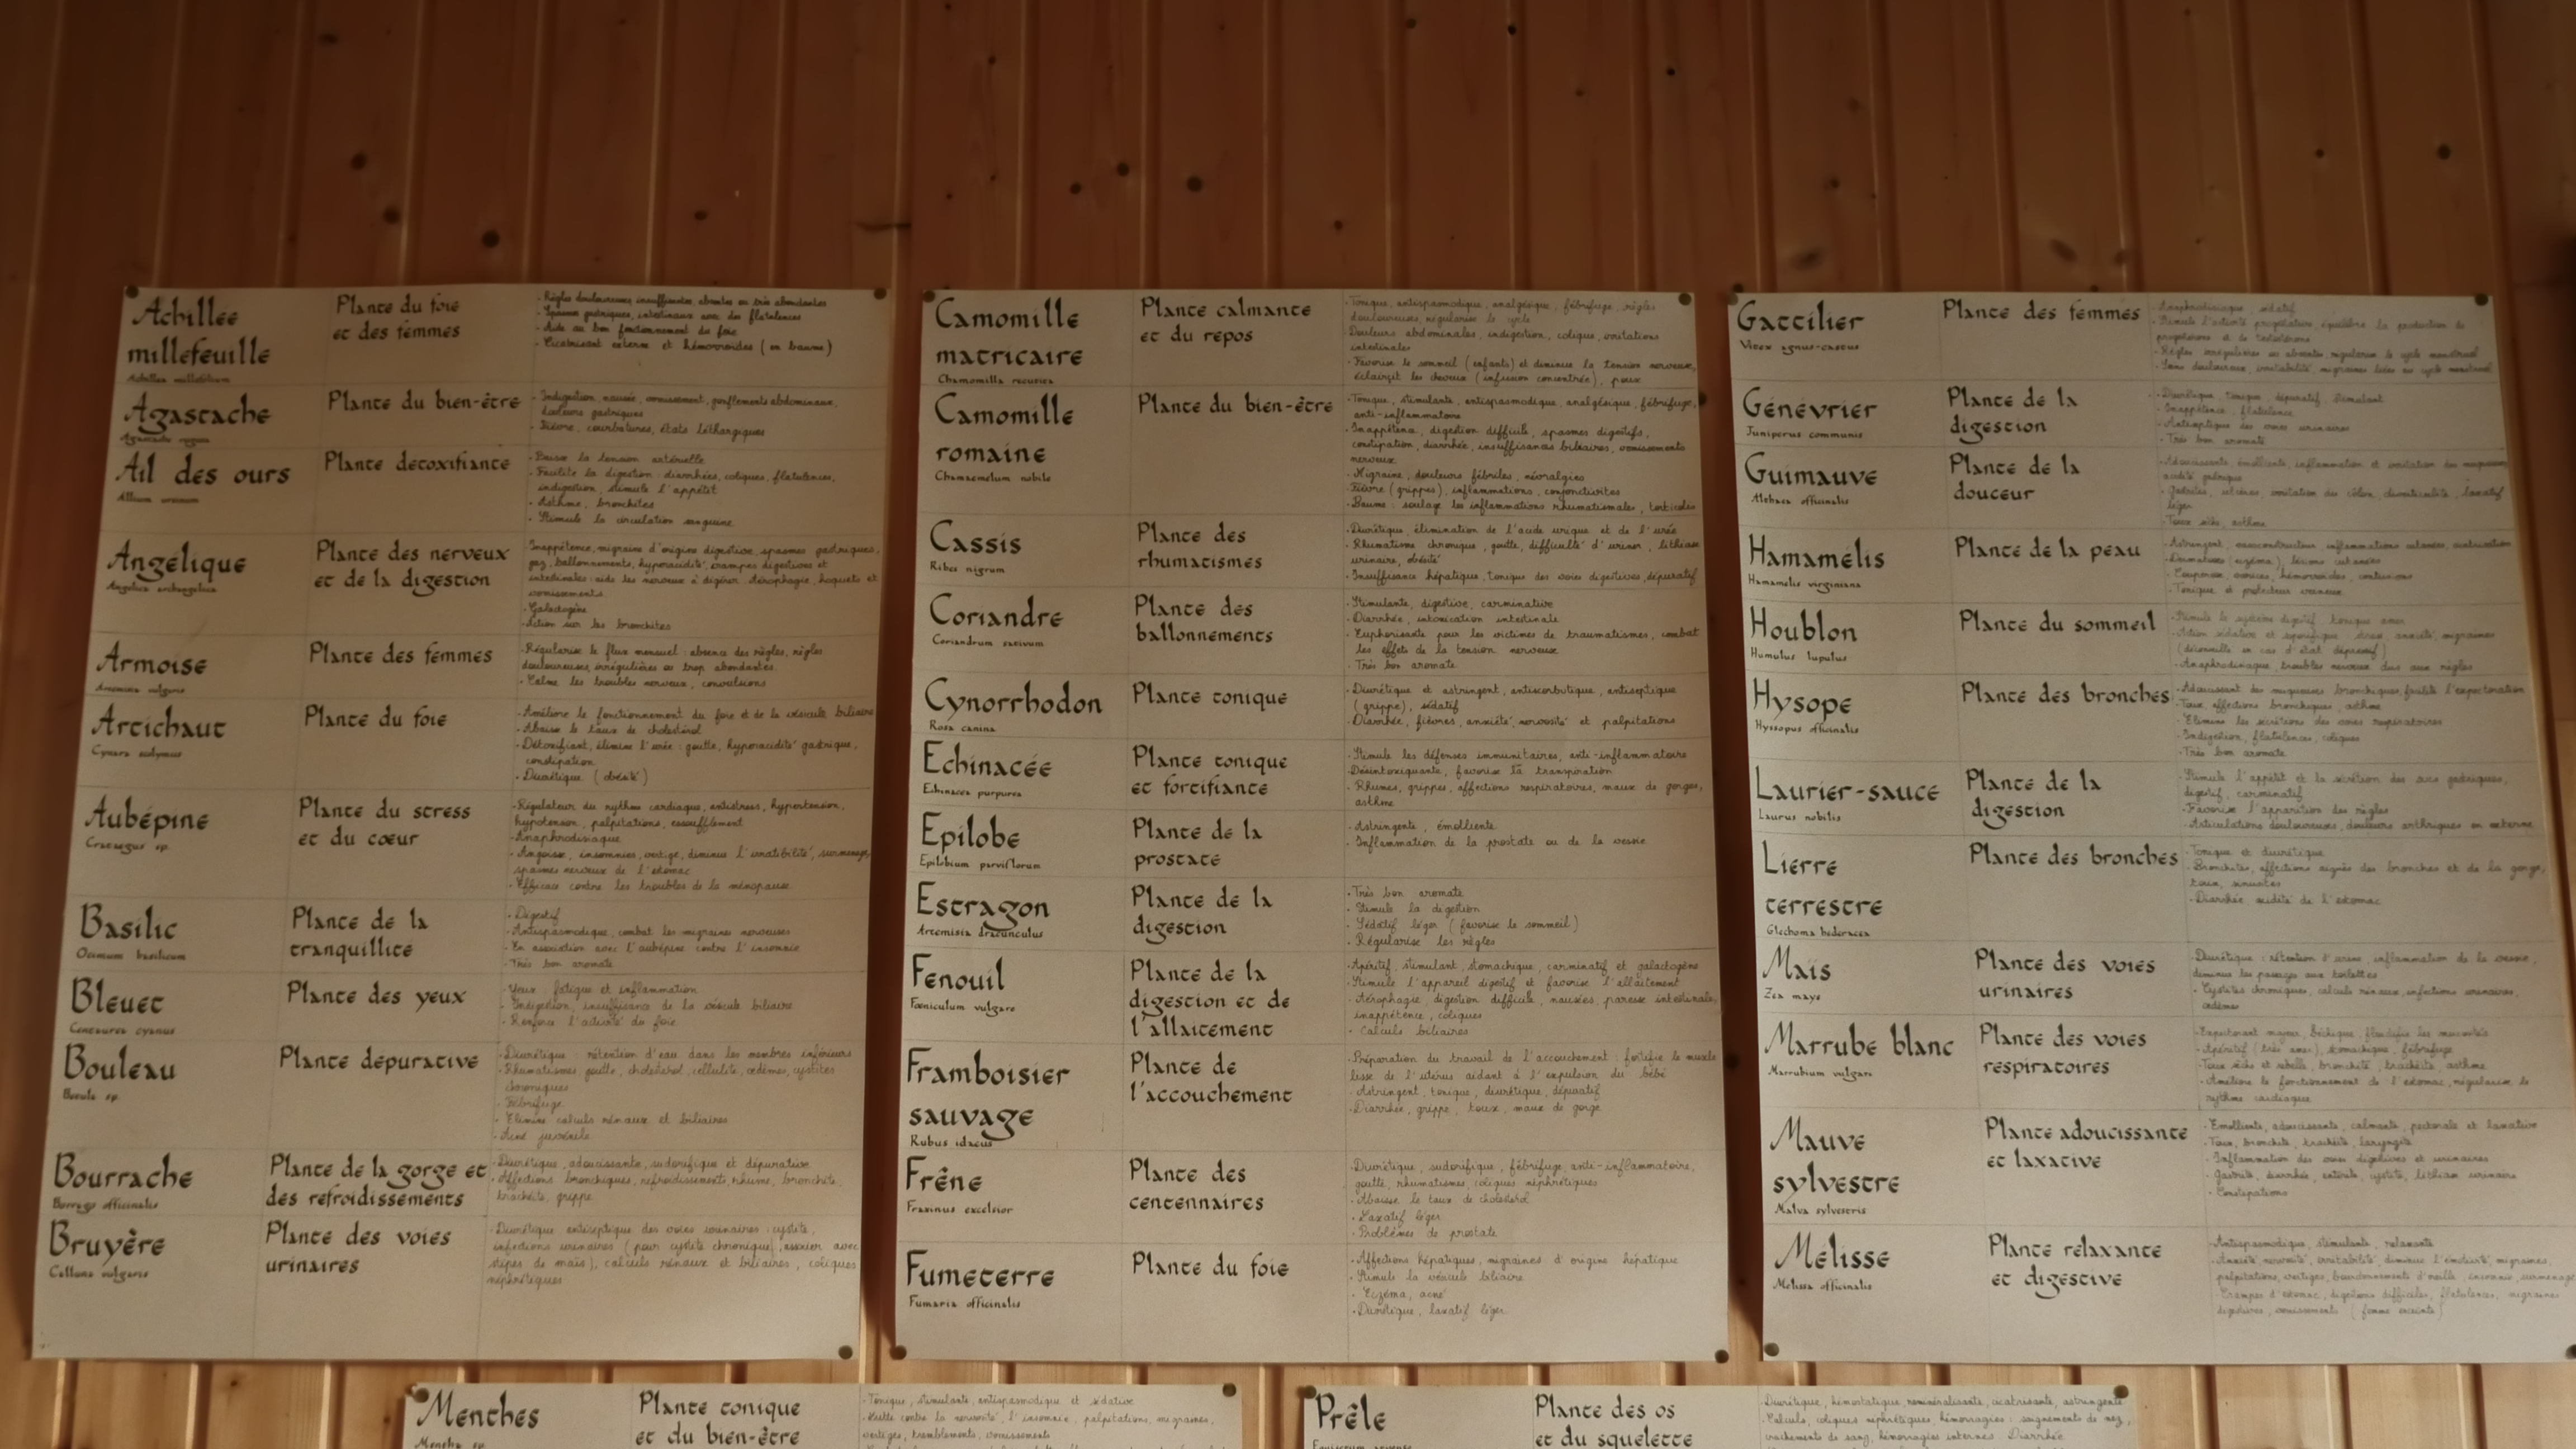 Achillée
millefeuille
Achillea millefolium
Plante du foie
et des femmes
- Règles douloureuses, insuffisantes, absentes ou très abondantes
- Spasmes gastriques, intestinaux avec des flatulences
- Aide au bon fonctionnement du foie
- Cicatrisant externe et hémorroïdes (en baume)
Agastache
Agastache rugosa
Plante du bien-être
- Indigestion, nausée, vomissement, gonflements abdominaux,
douleurs gastriques
- Fièvre, courbatures, états léthargiques
Ail des ours
Allium ursinum
Plante détoxifiante
- Baisse la tension artérielle
- Facilite la digestion : diarrhées, coliques, flatulences,
indigestion, stimule l'appétit
- Asthme, bronchites
- Stimule la circulation sanguine
Angélique
Angelica archangelica
Plante des nerveux
et de la digestion
- Inappétence, migraine d'origine digestive, spasmes gastriques,
gaz, ballonnements, hyperacidité, crampes digestives et
intestinales : aide les nerveux à digérer. Aérophagie, hoquets et
vomissements.
- Galactogène
- Action sur les bronchites
Armoise
Artemisia vulgaris
Plante des femmes
- Régularise le flux mensuel : absence des règles, règles
douloureuses, irrégulières ou trop abondantes
- Calme les troubles nerveux, convulsions
Artichaut
Cynara scolymus
Plante du foie
- Améliore le fonctionnement du foie et de la vésicule biliaire
- Abaisse le taux de cholestérol
- Détoxifiant, élimine l'urée : goutte, hyperacidité gastrique,
constipation
- Diurétique (obésité)
Aubépine
Crataegus sp.
Plante du stress
et du cœur
- Régulateur du rythme cardiaque, antistress, hypertension,
hypotension, palpitations, essoufflement
- Anaphrodisiaque
- Angoisse, insomnies, vertige, diminue l'irritabilité, surmenage,
spasmes nerveux de l'estomac
- Efficace contre les troubles de la ménopause
Basilic
Ocimum basilicum
Plante de la
tranquillité
- Digestif
- Antispasmodique, combat les migraines nerveuses
- En association avec l'aubépine contre l'insomnie
- Très bon aromate
Bleuet
Centaurea cyanus
Plante des yeux
- Yeux : fatigue et inflammation
- Indigestion, insuffisance de la vésicule biliaire
- Renforce l'activité du foie
Bouleau
Betula sp.
Plante dépurative
- Diurétique : rétention d'eau dans les membres inférieurs
- Rhumatismes, goutte, cholestérol, cellulite, œdèmes, cystites
chroniques
- Fébrifuge
- Élimine calculs rénaux et biliaires
- Acné juvénile
Bourrache
Borrago officinalis
Plante de la gorge et
des refroidissements
- Diurétique, adoucissante, sudorifique et dépurative
- Affections bronchiques, refroidissements, rhume, bronchite,
trachéite, grippe
Bruyère
Calluna vulgaris
Plante des voies
urinaires
- Diurétique antiseptique des voies urinaires : cystite,
infections urinaires (pour cystite chronique, associer avec
stipes de maïs), calculs rénaux et biliaires, coliques
néphrétiques
Camomille
matricaire
Chamomilla recutita
Plante calmante
et du repos
- Tonique, antispasmodique, analgésique, fébrifuge, règles
douloureuses, régularise le cycle
Douleurs abdominales, indigestion, colique, irritations
intestinales
- Favorise le sommeil (enfants) et diminue la tension nerveuse,
éclaircit les cheveux (infusion concentrée), peaux
Camomille
romaine
Chamaemelum nobile
Plante du bien-être
- Tonique, stimulante, antispasmodique, analgésique, fébrifuge,
anti-inflammatoire
- Inappétence, digestion difficile, spasmes digestifs,
constipation, diarrhée, insuffisances biliaires, vomissements
nerveux
- Migraine, douleurs fébriles, névralgies
- Fièvre (grippes), inflammations, conjonctivites
- Baume : soulage les inflammations rhumatismales, torticolis
Cassis
Ribes nigrum
Plante des
rhumatismes
- Diurétique, élimination de l'acide urique et de l'urée
- Rhumatisme chronique, goutte, difficulté d'uriner, lithiase
urinaire, obésité
- Insuffisance hépatique, tonique des voies digestives, dépuratif
Coriandre
Coriandrum sativum
Plante des
ballonnements
- Stimulante, digestive, carminative
- Diarrhée, intoxication intestinale
- Euphorisante pour les victimes de traumatismes, combat
les effets de la tension nerveuse
- Très bon aromate
Cynorrhodon
Rosa canina
Plante tonique
- Diurétique et astringent, antiscorbutique, antiseptique
(grippe), sédatif
- Diarrhée, fièvres, anxiété, nervosité et palpitations
Echinacée
Echinacea purpurea
Plante tonique
et fortifiante
- Stimule les défenses immunitaires, anti-inflammatoire
- Désintoxiquante, favorise la transpiration
- Rhumes, grippes, affections respiratoires, maux de gorges,
asthme
Epilobe
Epilobium parviflorum
Plante de la
prostate
- Astringente, émolliente
- Inflammation de la prostate ou de la vessie
Estragon
Artemisia dracunculus
Plante de la
digestion
- Très bon aromate
- Stimule la digestion
- Sédatif léger (favorise le sommeil)
- Régularise les règles
Fenouil
Foeniculum vulgare
Plante de la
digestion et de
l'allaitement
- Apéritif, stimulant, stomachique, carminatif et galactogène
- Stimule l'appareil digestif et favorise l'allaitement
- Aérophagie, digestion difficile, nausées, paresse intestinale,
inappétence, coliques
- Calculs biliaires
Framboisier
sauvage
Rubus idaeus
Plante de
l'accouchement
- Préparation du travail de l'accouchement : fortifie le muscle
lisse de l'utérus aidant à l'expulsion du bébé
- Astringent, tonique, diurétique, dépuratif
- Diarrhée, grippe, toux, maux de gorge
Frêne
Fraxinus excelsior
Plante des
centennaires
- Diurétique, sudorifique, fébrifuge, anti-inflammatoire,
goutte, rhumatismes, coliques néphrétiques
- Abaisse le taux de cholestérol
- Laxatif léger
- Problèmes de prostate
Fumeterre
Fumaria officinalis
Plante du foie
- Affections hépatiques, migraines d'origine hépatique
- Stimule la vésicule biliaire
- Eczéma, acné
- Diurétique, laxatif léger
Gattilier
Vitex agnus-castus
Plante des femmes
- Anaphrodisiaque sédatif
- Stimule l'activité progestative, équilibre la production de
progestérone et de testostérone
- Règles irrégulières ou absentes, régularise le cycle menstruel
- Seins douloureux, irritabilité, migraines liées au cycle menstruel
Génévrier
Juniperus communis
Plante de la
digestion
- Diurétique, tonique, dépuratif, stimulant
- Inappétence, flatulence
- Antiseptique des voies urinaires
- Très bon aromate
Guimauve
Althaea officinalis
Plante de la
douceur
- Adoucissante, émolliente, inflammation et irritation des muqueuses,
acidité gastrique
- Gastrites, ulcères, irritation du côlon, diverticulite, laxatif
léger
- Toux sèche, asthme
Hamamélis
Hamamelis virginiana
Plante de la peau
- Astringent, vasoconstricteur, inflammations cutanées, cicatrisation
- Dermatoses (eczéma), lésions cutanées
- Couperose, varices, hémorroïdes, contusions
- Tonique et protecteur veineux
Houblon
Humulus lupulus
Plante du sommeil
- Stimule le système digestif, tonique amer
- Action sédative et soporifique, stress, anxiété, migraines
(déconseillé en cas d'état dépressif)
- Anaphrodisiaque, troubles nerveux dus aux règles
Hysope
Hyssopus officinalis
Plante des bronches
- Adoucissant des muqueuses bronchiques, facilite l'expectoration
- Toux, affections bronchiques, asthme
- Elimine les sécrétions des voies respiratoires
- Indigestion, flatulences, coliques
- Très bon aromate
Laurier-sauce
Laurus nobilis
Plante de la
digestion
- Stimule l'appétit et la sécrétion des sucs gastriques,
digestif, carminatif
- Favorise l'apparition des règles
- Articulations douloureuses, douleurs arthriques en externe
Lierre
terrestre
Glechoma hederacea
Plante des bronches
- Tonique et diurétique
- Bronchites, affections aiguës des bronches et de la gorge,
toux, sinusites
- Diarrhée, acidité de l'estomac
Maïs
Zea mays
Plante des voies
urinaires
- Diurétique : rétention d'urine, inflammation de la vessie,
diminue les passages aux toilettes
- Cystites chroniques, calculs rénaux, infections urinaires,
œdèmes
Marrube blanc
Marrubium vulgare
Plante des voies
respiratoires
- Expectorant majeur, béchique, fluidifie les mucosités
- Apéritif (très amer), stomachique, fébrifuge
- Toux sèche et rebelle, bronchite, trachéite, asthme
- Améliore le fonctionnement de l'estomac, régularise le
rythme cardiaque
Mauve
sylvestre
Malva sylvestris
Plante adoucissante
et laxative
- Emolliente, adoucissante, calmante, pectorale et laxative
- Toux, bronchite, trachéite, laryngite
- Inflammation des voies digestives et urinaires
- Gastrite, diarrhée, entérite, cystite, lithiase urinaire
- Constipations
Mélisse
Melissa officinalis
Plante relaxante
et digestive
- Antispasmodique, stimulante, relaxante
- Anxiété, nervosité, irritabilité, diminue l'émotivité, migraines,
palpitations, vertiges, bourdonnements d'oreille, insomnie, surmenage
- Crampes d'estomac, digestions difficiles, flatulences, migraines
digestives, vomissements (femme enceinte)
Menthes
Mentha sp.
Plante tonique
et du bien-être
- Tonique, stimulante, antispasmodique et sédative
- Lutte contre la nervosité, l'insomnie, palpitations, migraines,
vertiges, tremblements, vomissements
Prêle
Equisetum arvense
Plante des os
et du squelette
- Diurétique, hémostatique, reminéralisante, cicatrisante, astringente
- Calculs, coliques néphrétiques, hémorragies : saignements de nez,
crachements de sang, hémorragies internes. Diarrhée